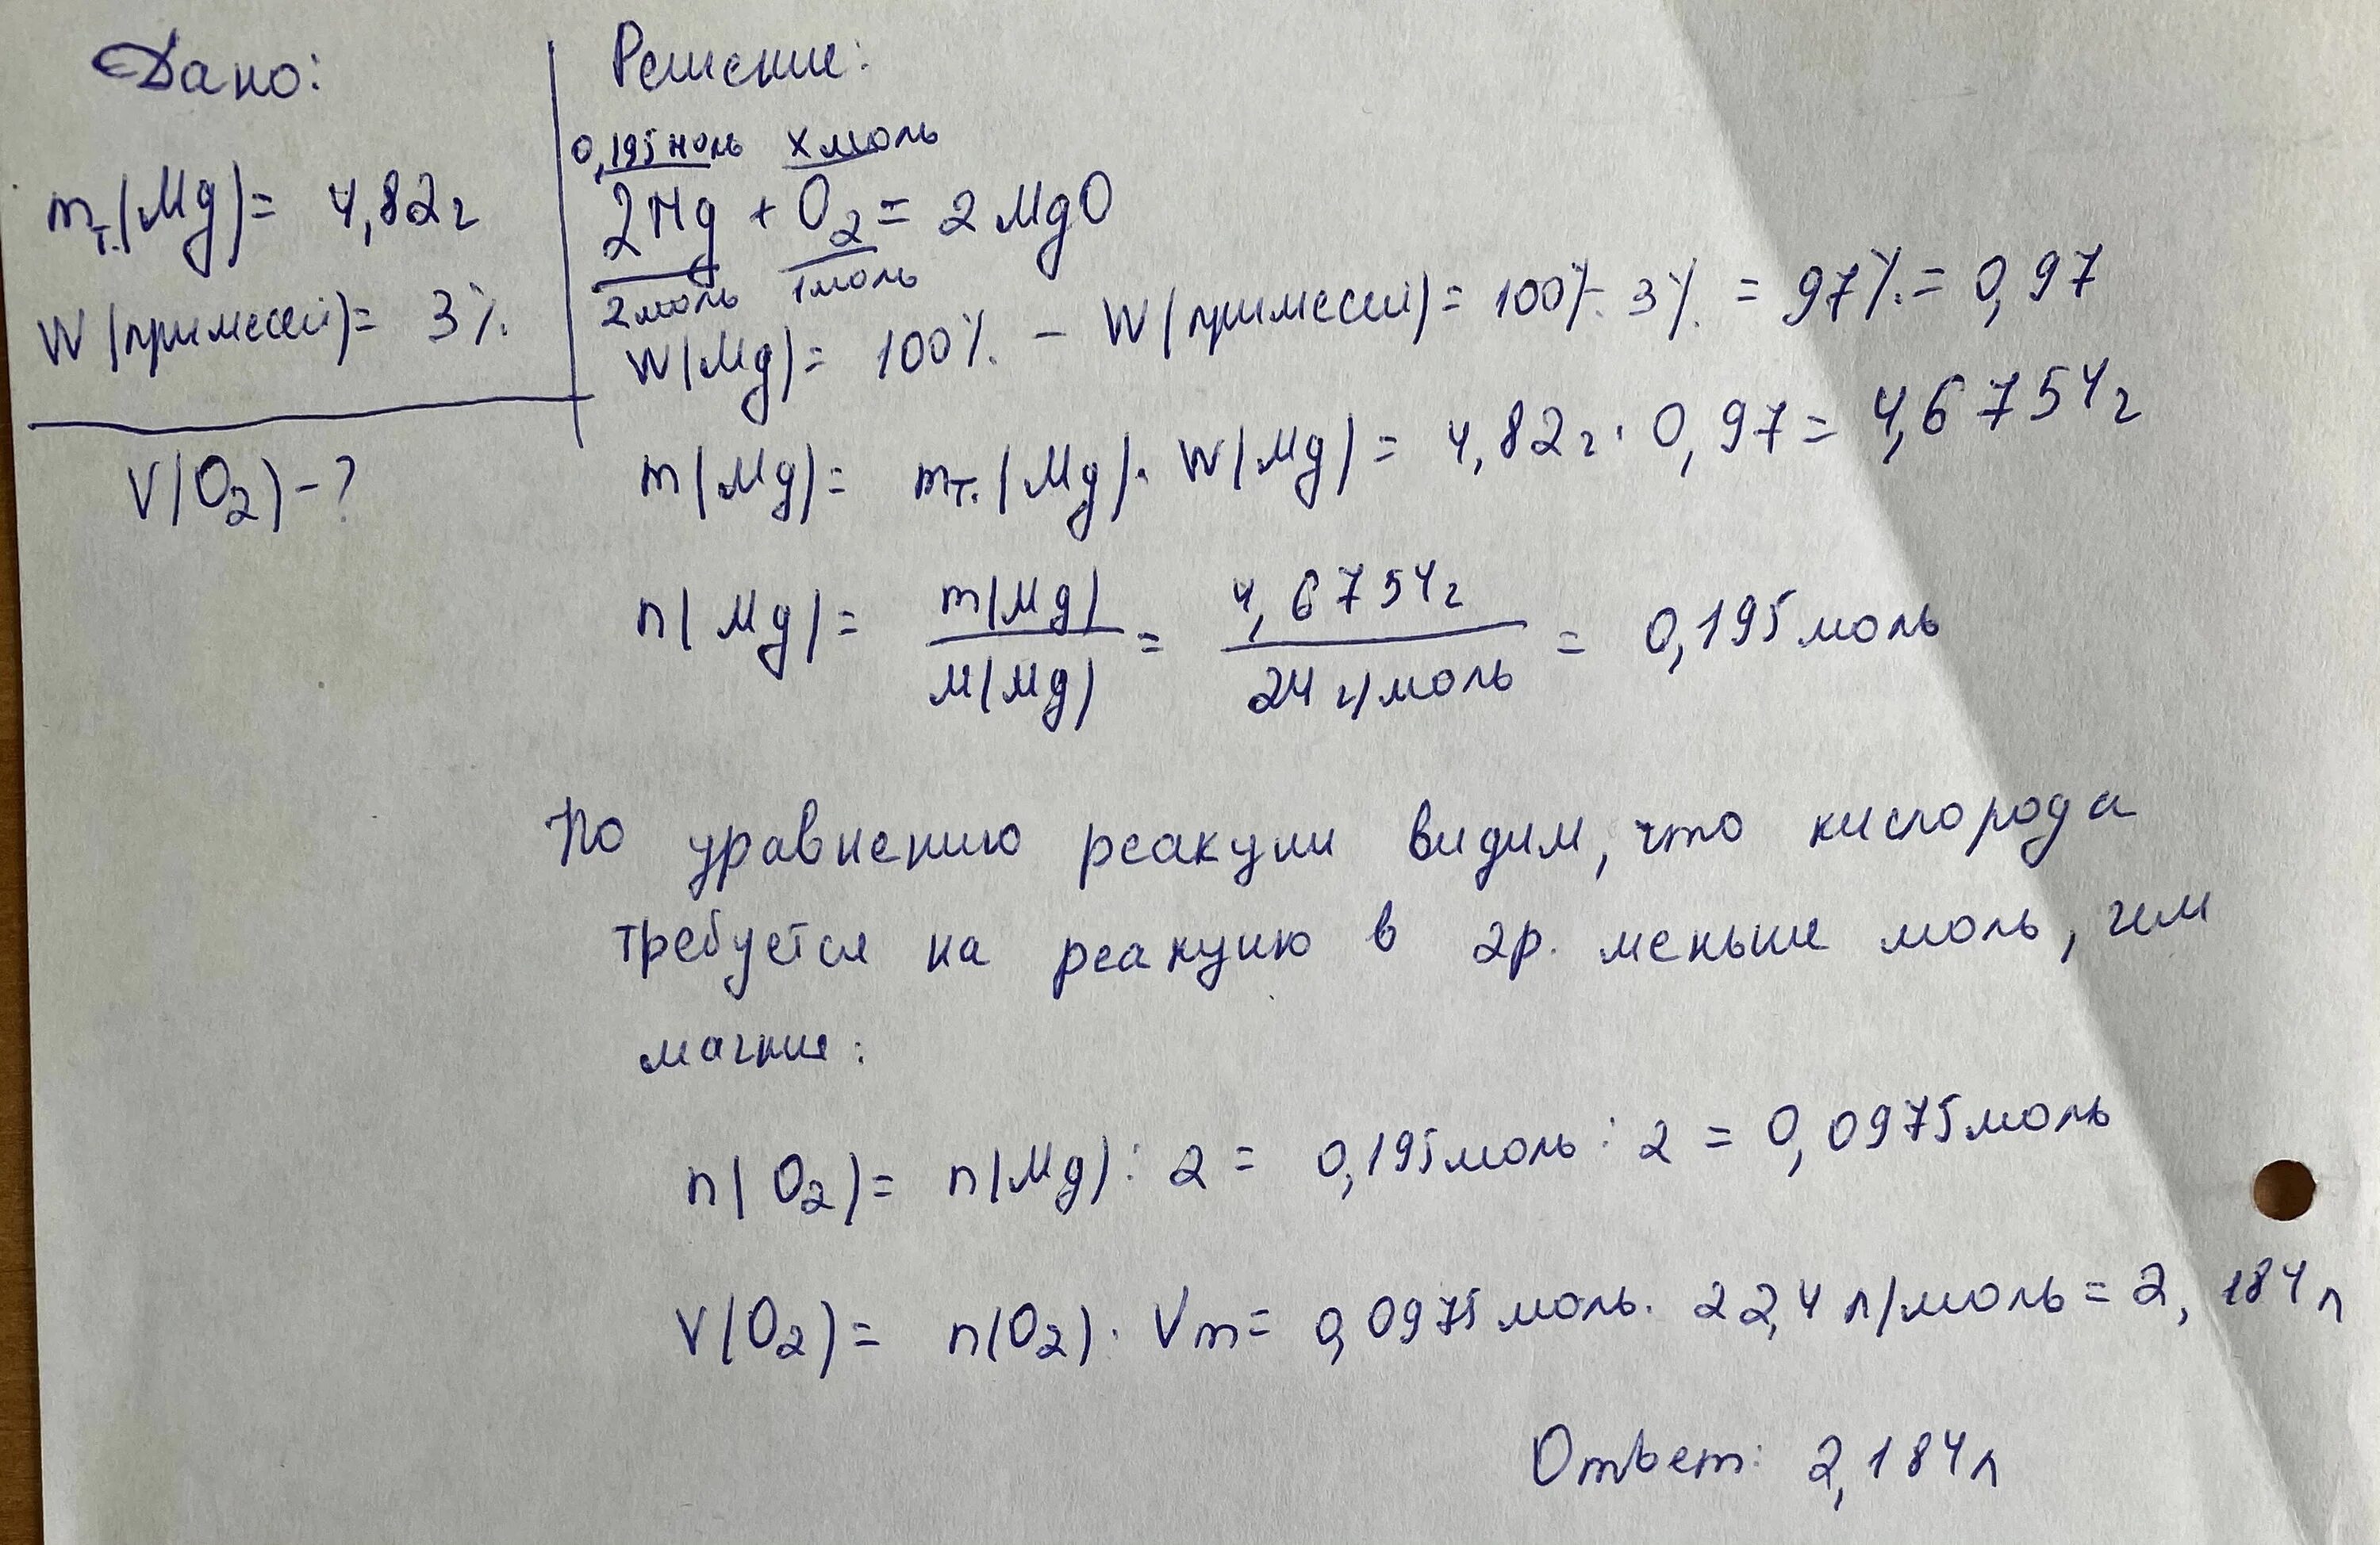 Дано:
mт.(Mg)= 4,82г
W(примесей)= 3%
V(O2)-?
Решение:
0,195 моль x моль
2Mg + O2 = 2MgO
2 моль 1 моль
W(Mg)= 100% - W(примесей)= 100%-3% = 97% = 0,97
m(Mg)= mт.(Mg)·W(Mg)= 4,82г·0,97= 4,6754г
n(Mg)= m(Mg)/M(Mg) = 4,6754г/24 г/моль = 0,195 моль
По уравнению реакции видим, что кислорода
требуется на реакцию в 2р. меньше моль, чем
магния:
n(O2)= n(Mg):2= 0,195 моль:2 = 0,0975 моль
V(O2)= n(O2)·Vm= 0,0975 моль·22,4 л/моль=2,184л
Ответ: 2,184л